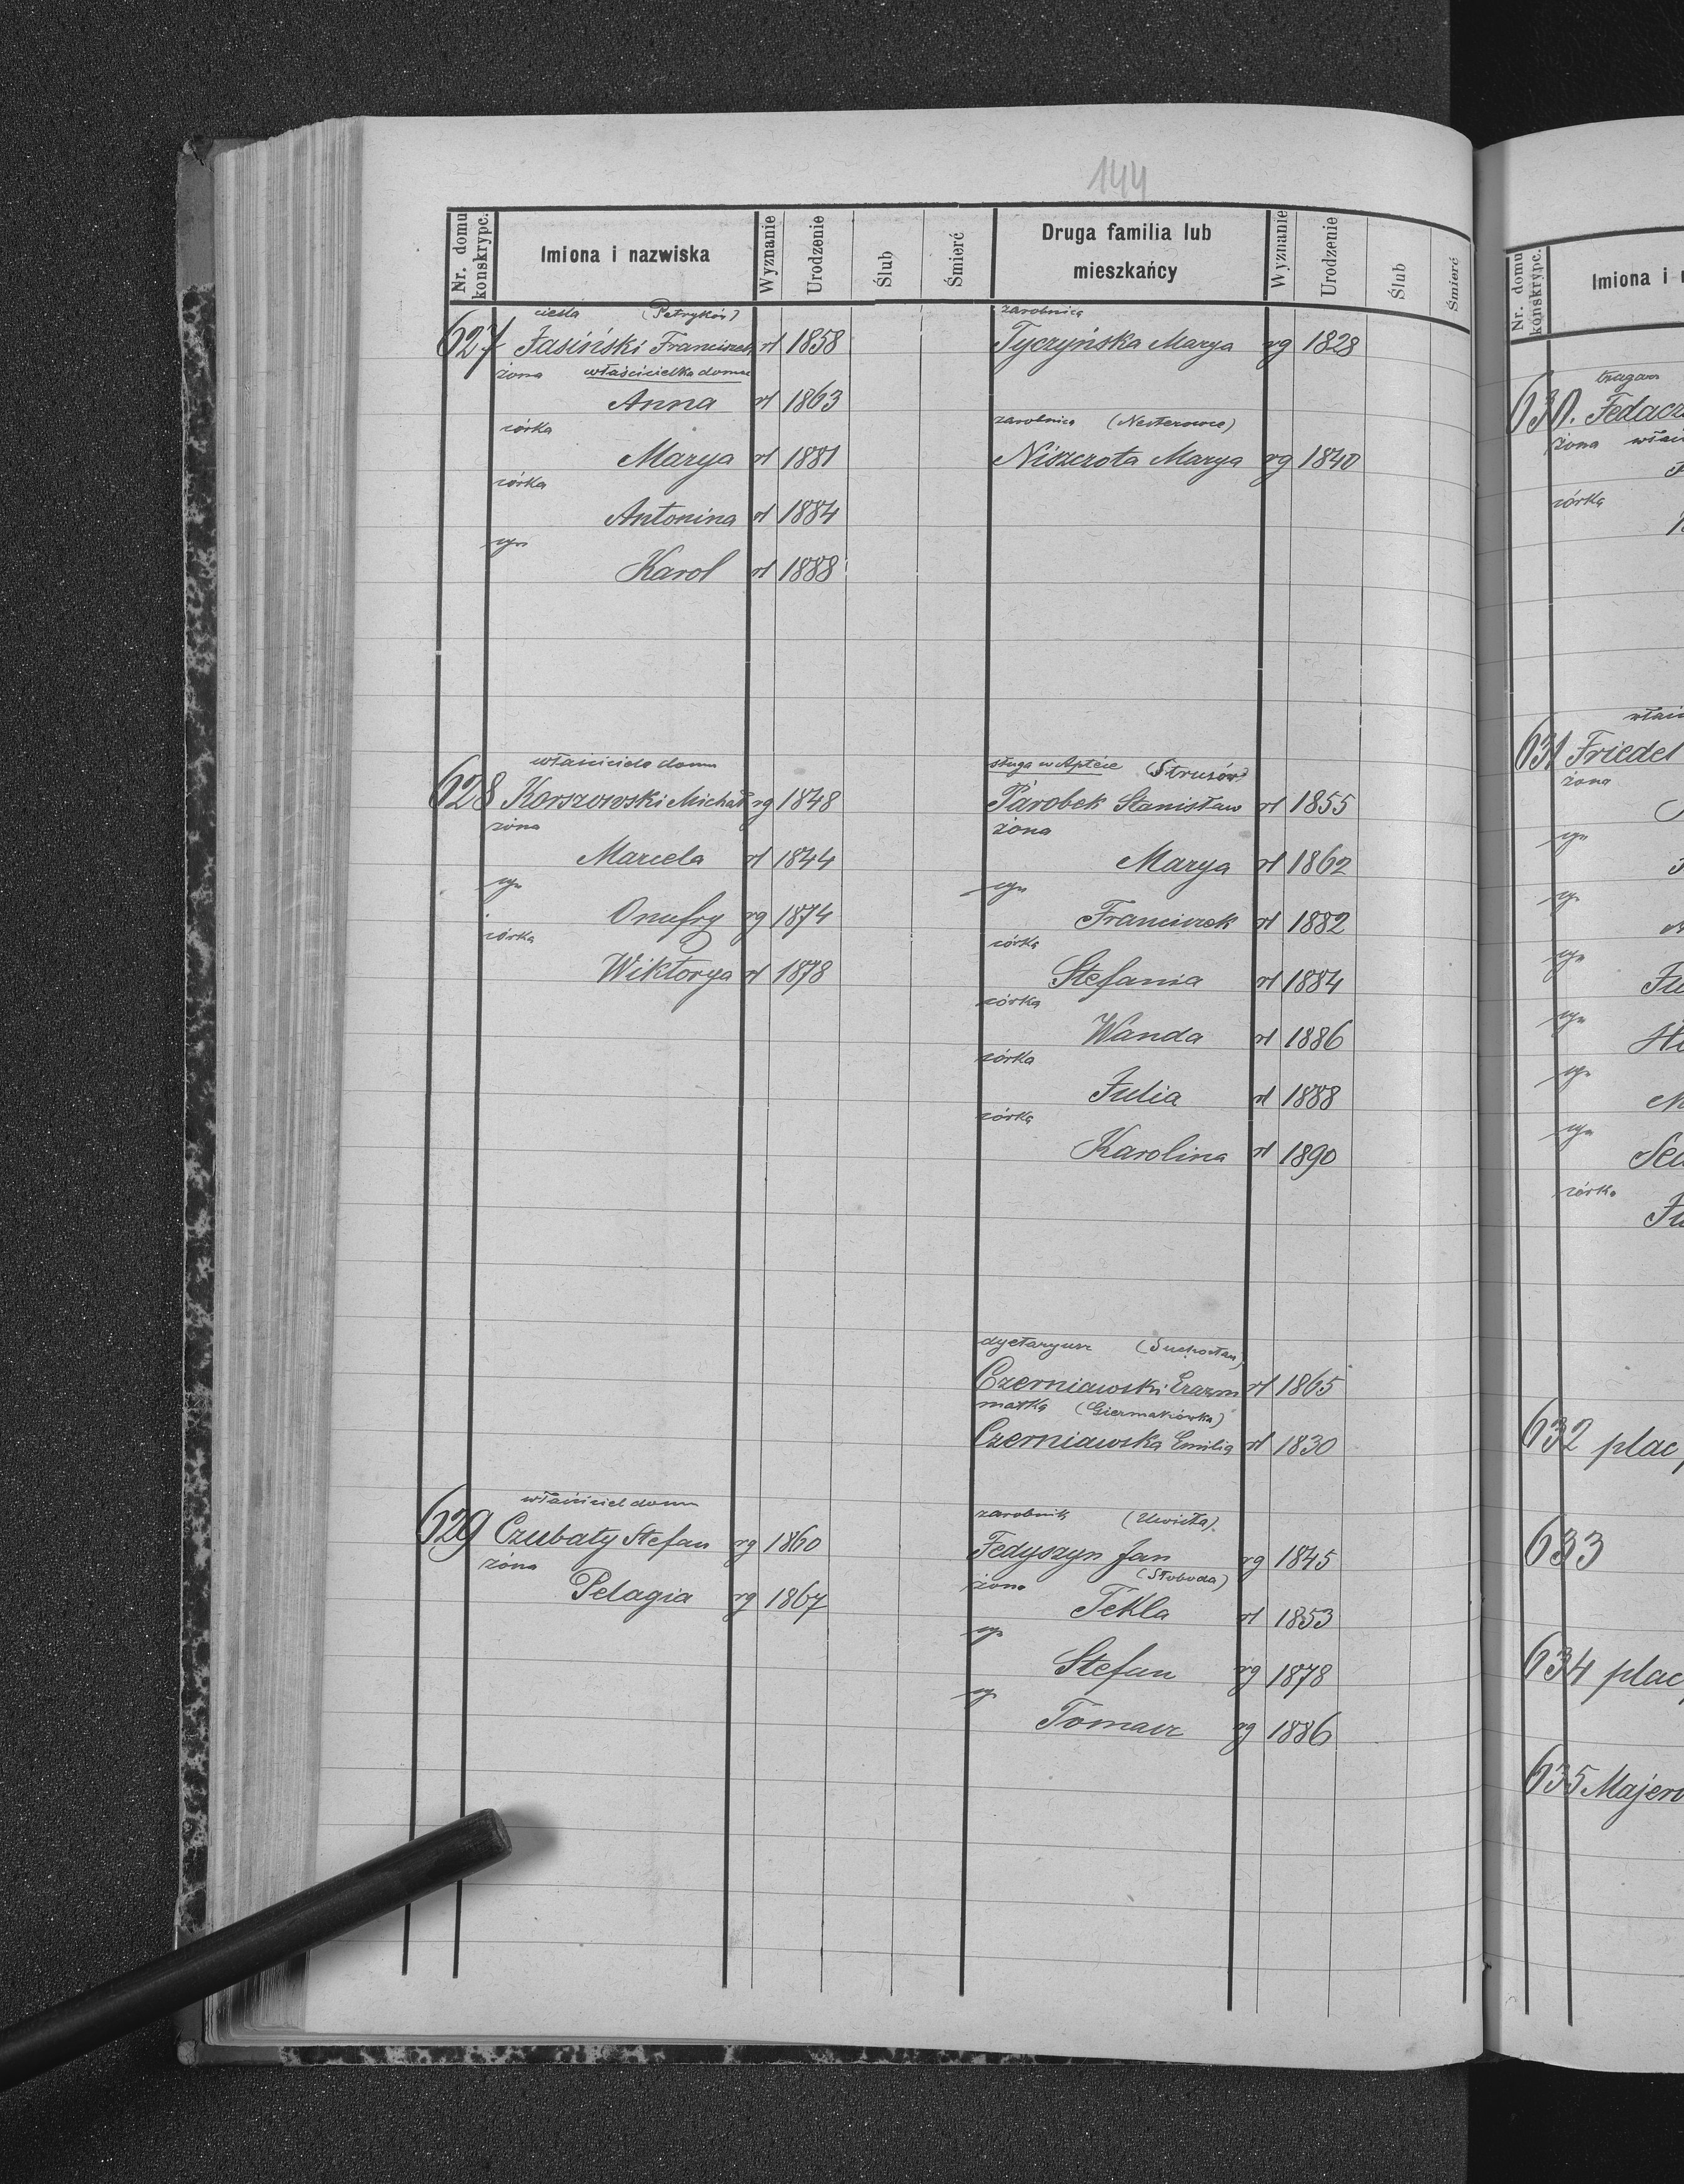 144
Nr. domu konskrypc.
Imiona i nazwiska
Wyznanie
Urodzenie
Ślub
Śmierć
Druga familia lub mieszkańcy
Wyznanie
Urodzenie
Ślub
Śmierć
cieśla (Petryków)
627 Jasiński Franciszek rł 1858
żona właścicielka domu
Anna rł 1863
córka
Marya rł 1881
córka
Antonina rł 1884
syn
Karol rł 1888
zarobnica
Tyczyńska Marya rg 1828
zarobnica (Nesterowce)
Niszczota Marya rg 1840
właściciel domu
628 Korszowski Michał rg 1848
żona
Marcela rł 1844
syn
Onufry rg 1874
córka
Wiktorya rł 1878
sługa w Aptece (Strusów)
Parobek Stanisław rł 1855
żona
Marya rł 1862
syn
Franciszek rł 1882
córka
Stefania rł 1884
córka
Wanda rł 1886
córka
Julia rł 1888
córka
Karolina rł 1890
dyetaryusz
Czerniawski Erazm rł 1865
matka (Giermakówka)
Czerniawska Emilia rł 1830
właściciel domu
629 Czubaty Stefan rg 1860
żona
Pelagia rg 1867
zarobnik (Uwisła)
Fedyszyn Jan rg 1845
żona (Słoboda)
Tekla rł 1853
syn
Stefan rg 1878
syn
Tomasz rg 1886
Nr. domu konskrypc.
Imiona i
tragarz
630. Fedacz
żona
córka
631 Friedel
żona
syn
syn
syn
syn
syn
syn
córka
632 plac
633
634 plac
635 Majero